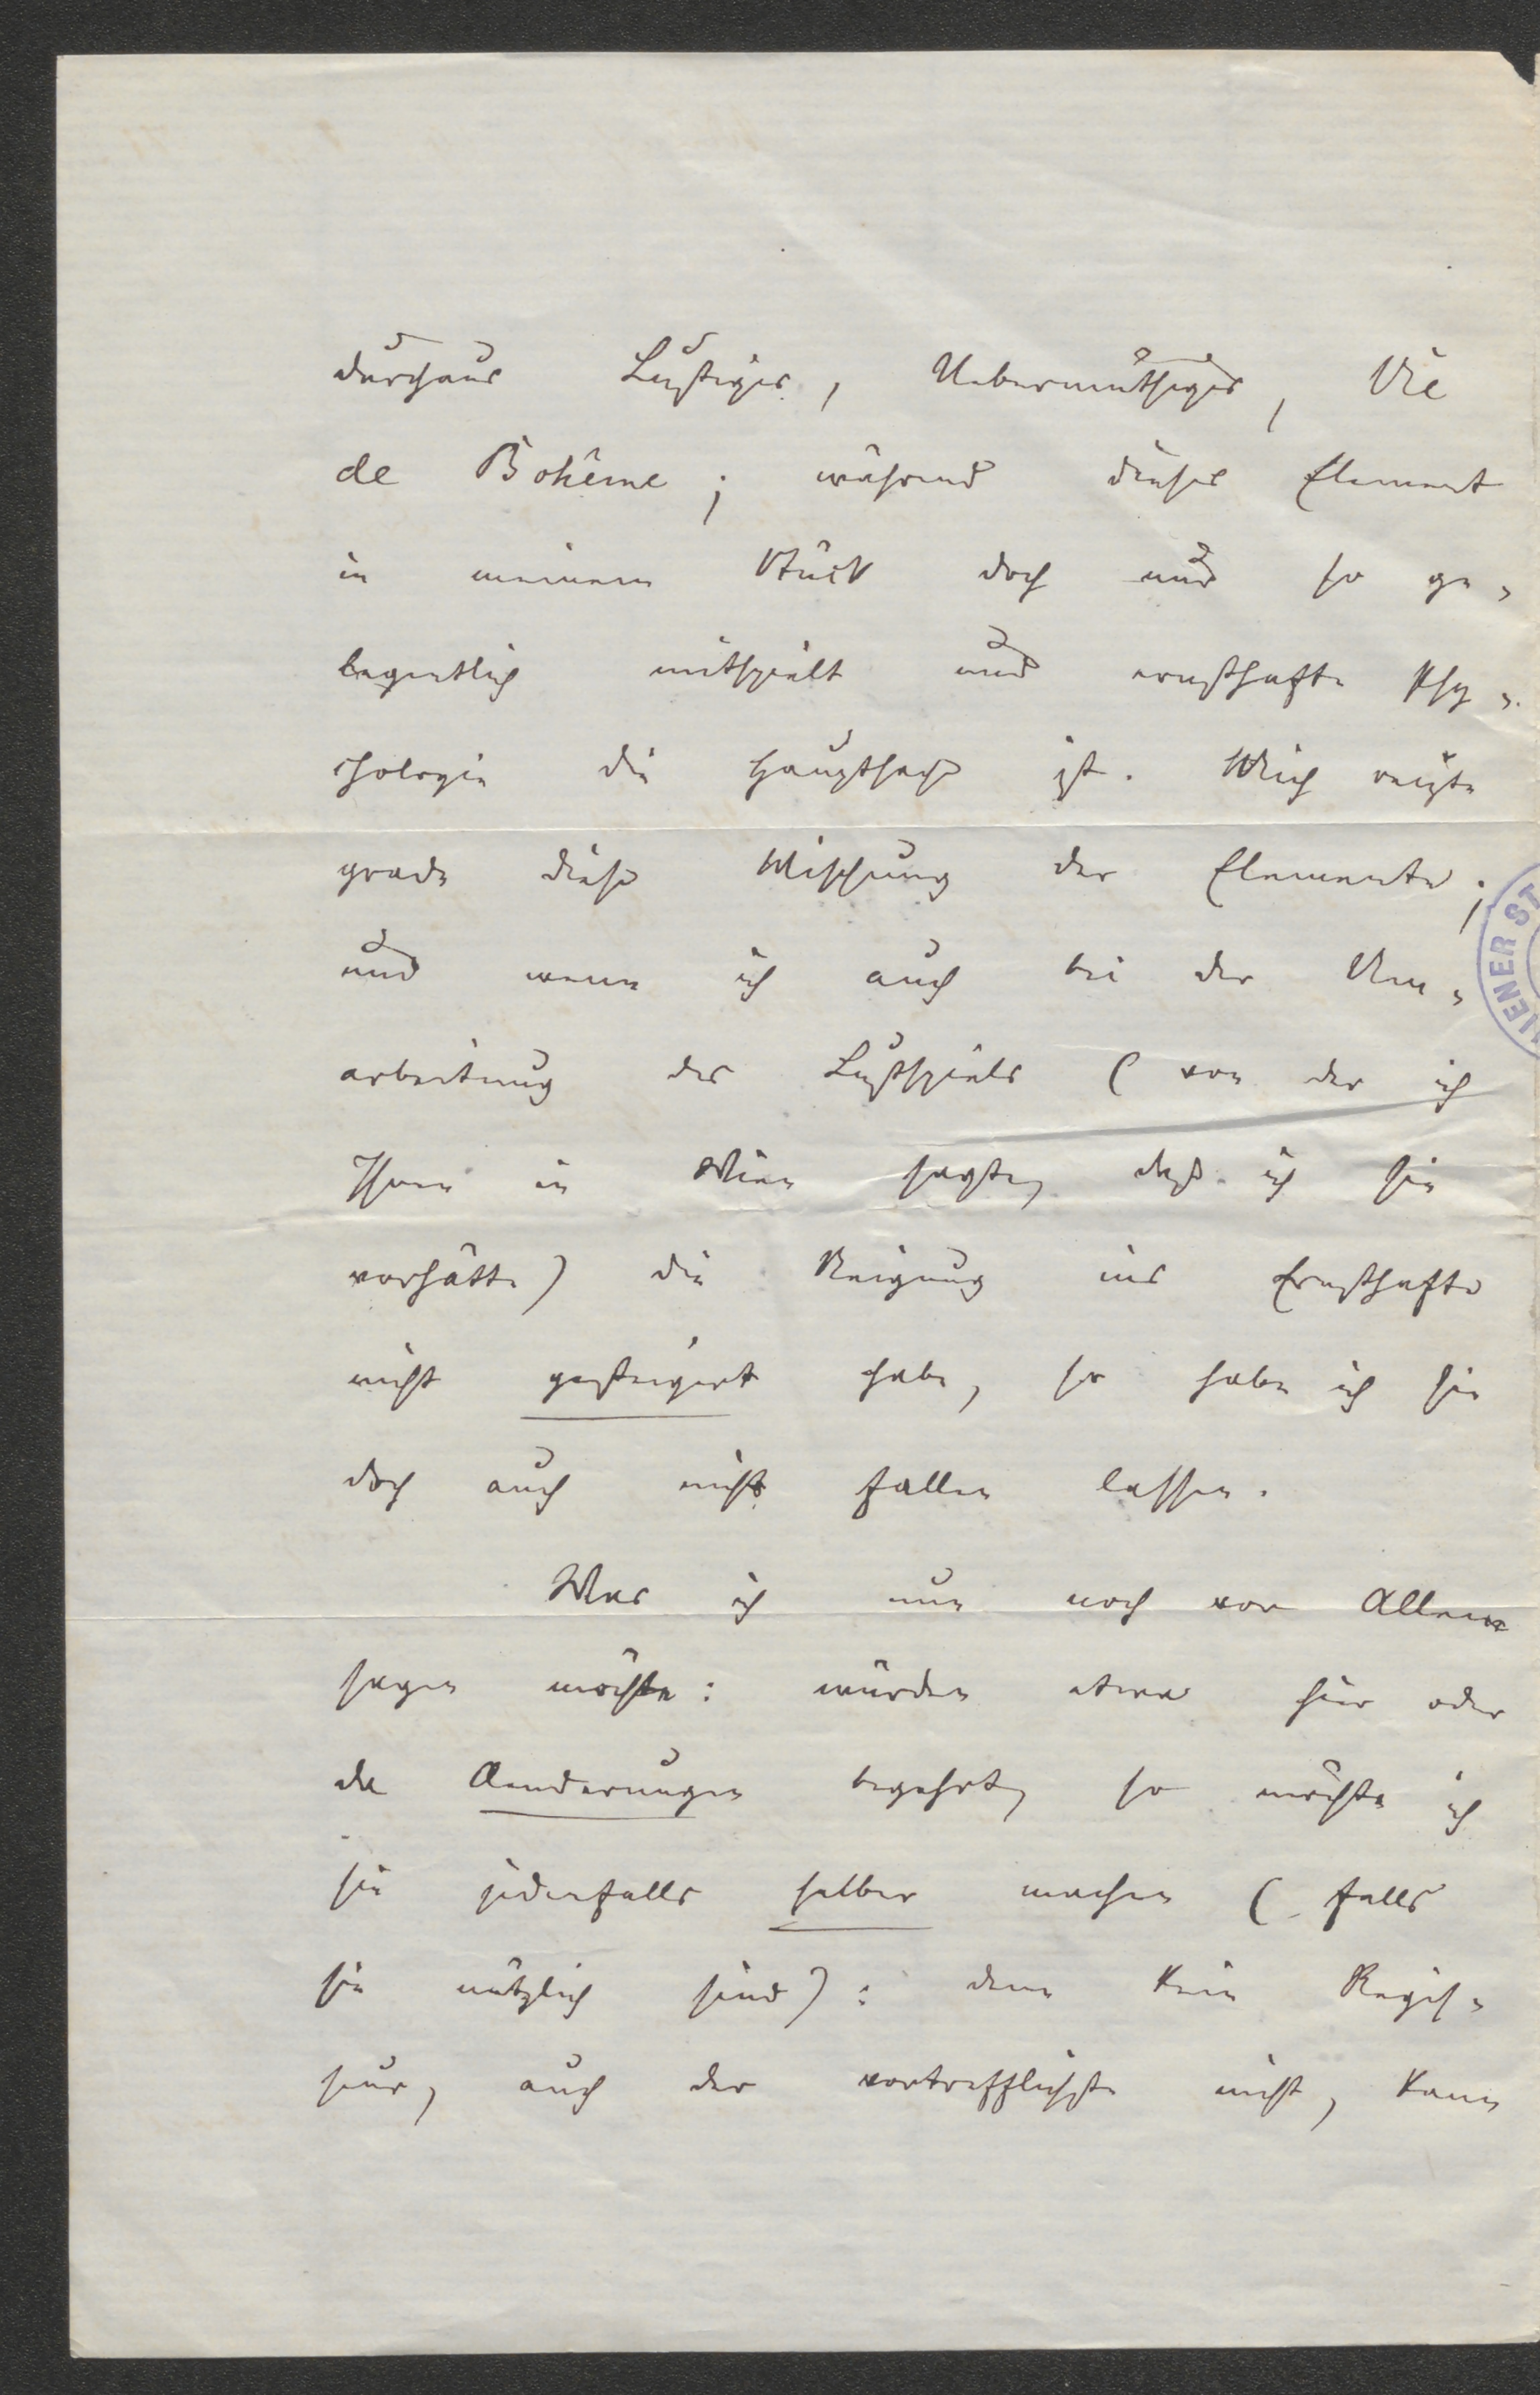 durchaus Lustiges, Uebermüthiges, Vie
de Bohême; während dieses Element
in meinem Stück doch nur so ge-
legentlich mitspielt und ernsthafte Psy-
chologie die Hauptsache ist. Mich reizte
grade diese Mischung der Elemente;
und wenn ich auch bei der Um-
arbeitung des Lustspiels (von der ich
Ihnen in Wien sagte, daß ich sie
vorhätte) die Neigung ins Ernsthafte
nicht gesteigert habe, so habe ich sie
doch auch nicht fallen lassen.
Was ich nun noch vor Allem
sagen möchte: würden etwa hier oder
da Aenderungen begehrt, so möchte ich
sie jedenfalls selber machen (falls
sie nützlich sind): denn kein Regis-
seur, auch der vortrefflichste nicht, kann
IENER ST